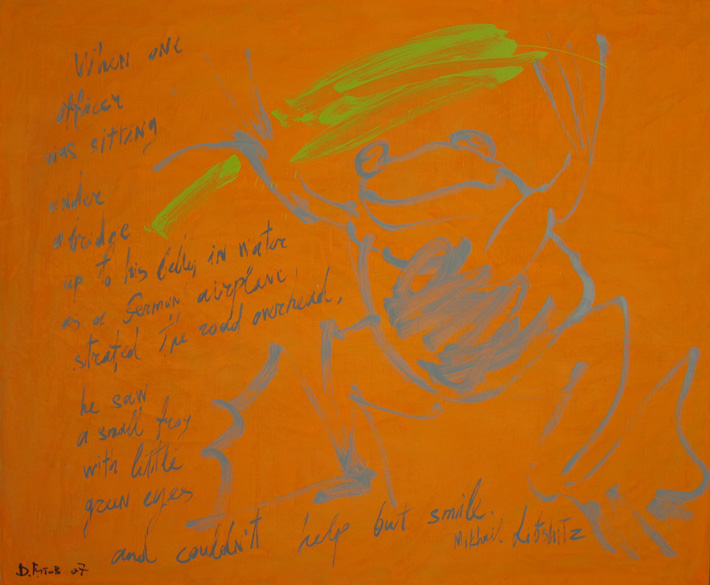 When one
officer
was sitting
under
a bridge
up to his belly in water
as a German airplane
strafed the road overhead,
he saw
a small frog
with little
green eyes
and couldn't help but smile.
Mikhail Lifshitz
07